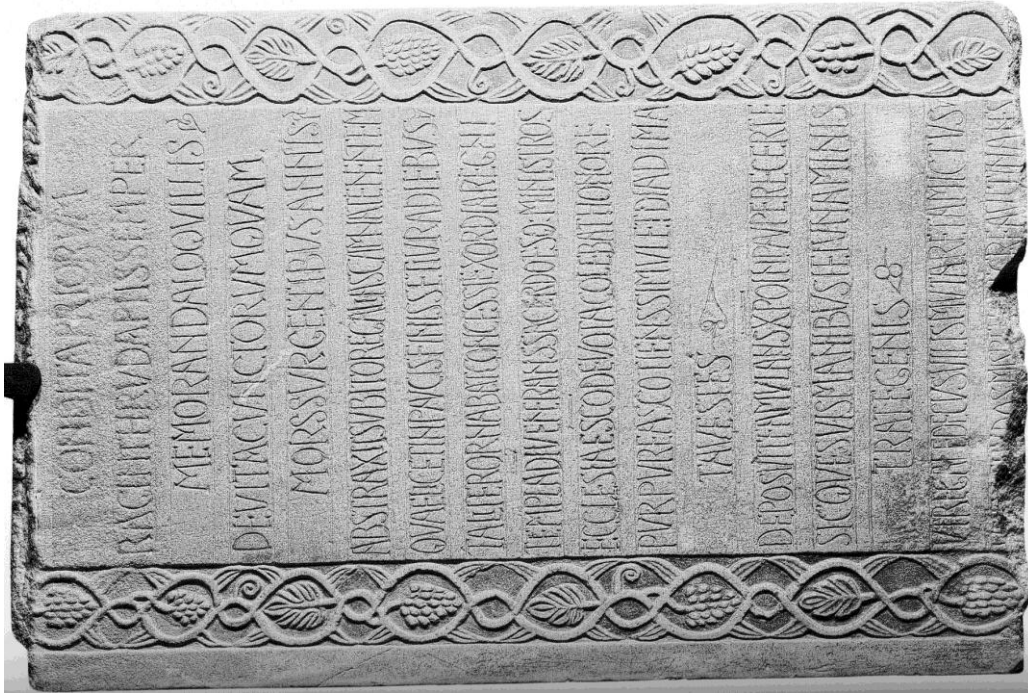 CONDITA PRIORVM
RAGINTHRVDA PIIS SEMPER
MEMORANDA LOQVILLIS
DE VITA CVNCTORVM QVAM
MORS SVRGENTIBVS ANNIS
ABSTRAXIT SVBITO REGALIS CVLMINA TENENTEM
QVAE LICET IN PACIS FENISSET IVRA DIEBVS
TALITER ORNABAT CONCESSI EXORDIA REGNI
TEMPLA DI VENERANS SACERDOTES OMINISTROS
ECCLESIAE SCO DEVOTA COLEBAT HONORE
PVRPVREAS COTIENS SIMVL ET DIADIMA
TA VESTES
DEPOSVIT XPO PAVPERE CERTE
SICQVE SVIS MANIBVS
TRA TEGENIS
VT DECVS VILIS MVTARET AMICTVS